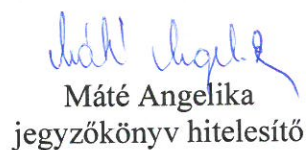 Máté Angelika
Máté Angelika
jegyzőkönyv hitelesítő